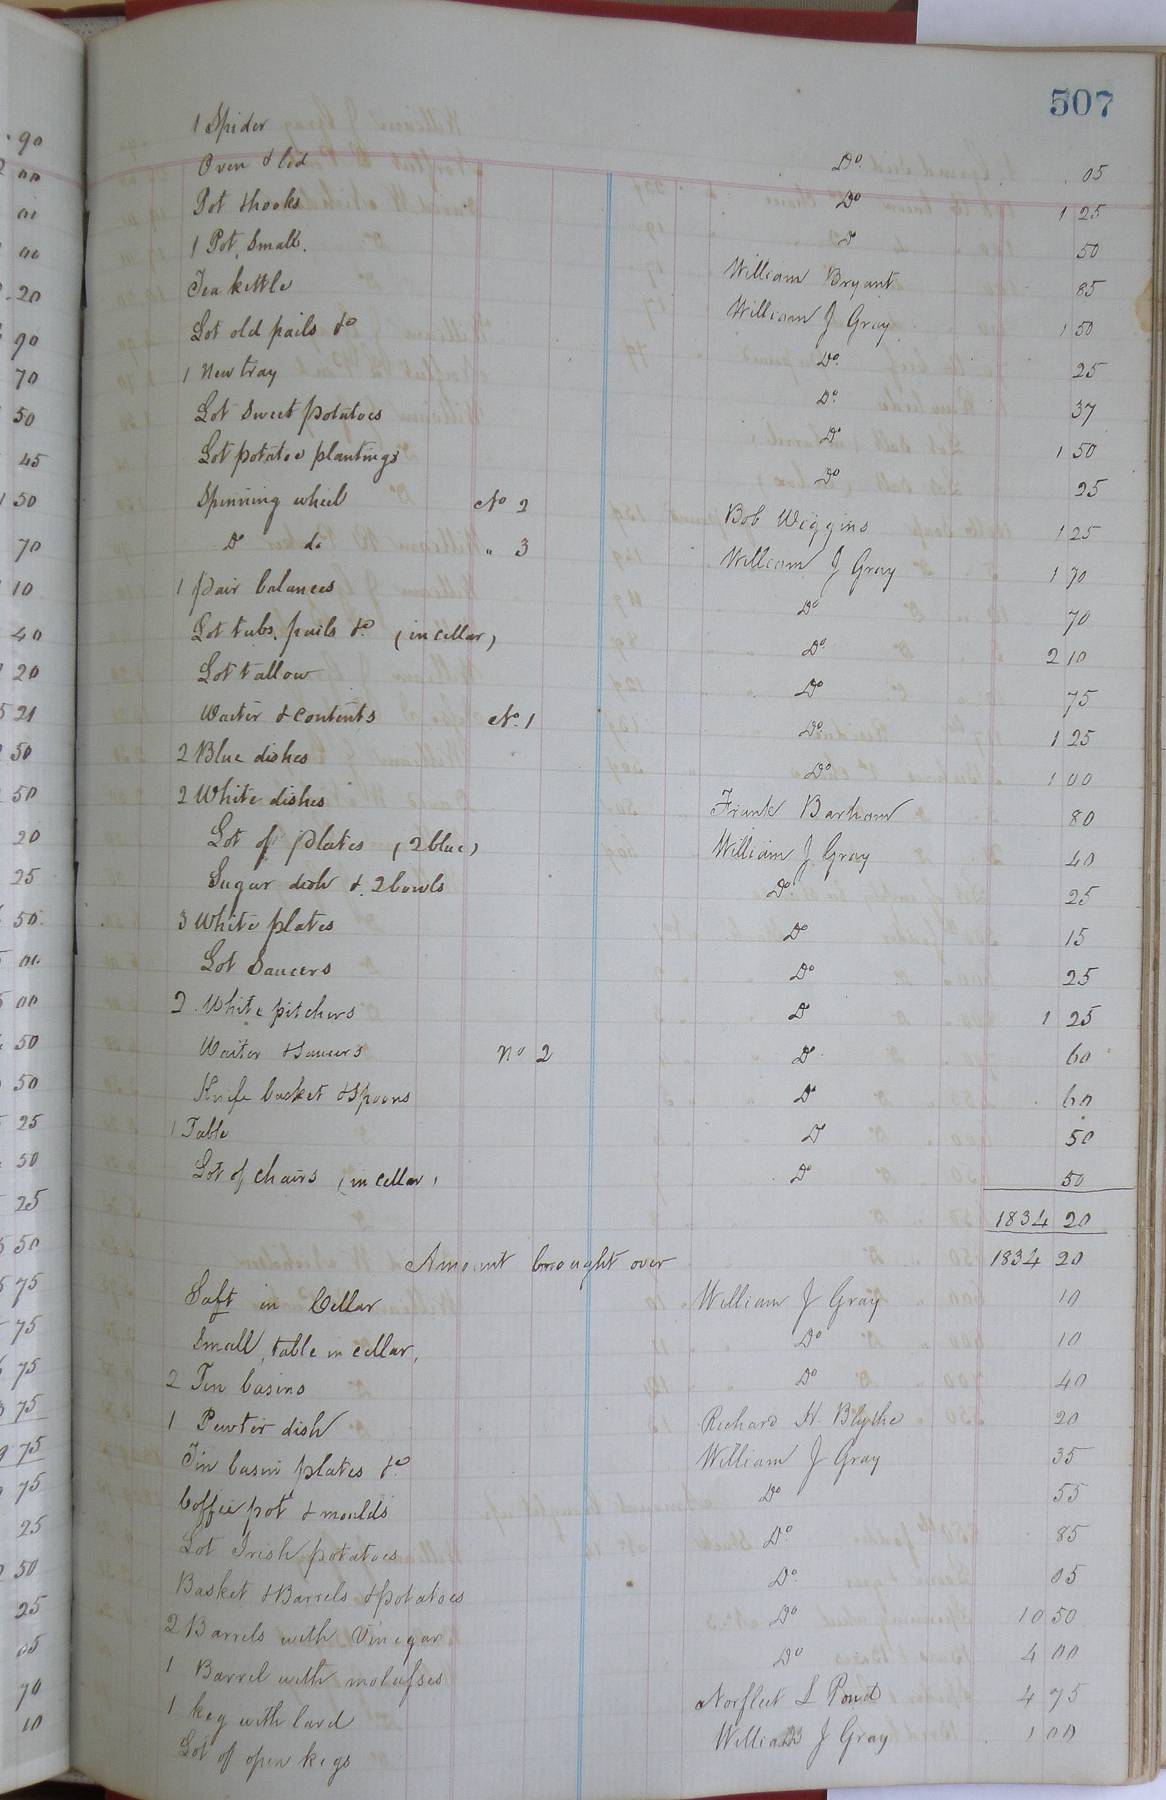 507
1 Spider Do. 05
Oven & lid Do 1 25
Pot & hooks Do 50
1 Pot, Small. William Bryant 85
Tea kettle William J Gray 1 50
Lot old pails &c Do. 25
1 New tray Do. 37
Lot Sweet potatoes Do 1 50
Lot potatoe plantings Do 25
Spinning wheel No 2 Bob Wiggins 1 25
Do do " 3 William J Gray 1 70
1 pair balances Do 70
Lot tubs, pails &c. (in cellar) Do. 2 10
Lot tallow Do 75
Waiter & contents No. 1 Do. 1 25
2 Blue dishes Do 1 00
2 White dishes Frank Barham 80
Lot of plates (2 blue) William J Gray 40
Sugar dish & 2 bowls Do. 25
3 White plates Do 15
Lot Saucers Do 25
2 White pitchers Do 1 25
Waiter & Saucers No 2 Do 60
Knife basket & Spoons Do 60
1 Table Do 50
Lot of chairs (in cellar) Do 50
1834 20
Amount brought over 1834 20
Saft in Cellar William J Gray 10
Small table in cellar, Do 10
2 Tin basins Do 40
1 Pewter dish Richard H. Blythe 20
Tin basin plates &c. William J Gray 35
Coffee pot & moulds Do 55
Lot Irish potatoes Do. 85
Basket & Barrels & potatoes Do. 05
2 Barrels with Vinegar Do 10 50
1 Barrel with molasses Do 4 00
1 keg with lard Norfleet L Pond 4 75
Lot of open kegs William J Gray 1 00